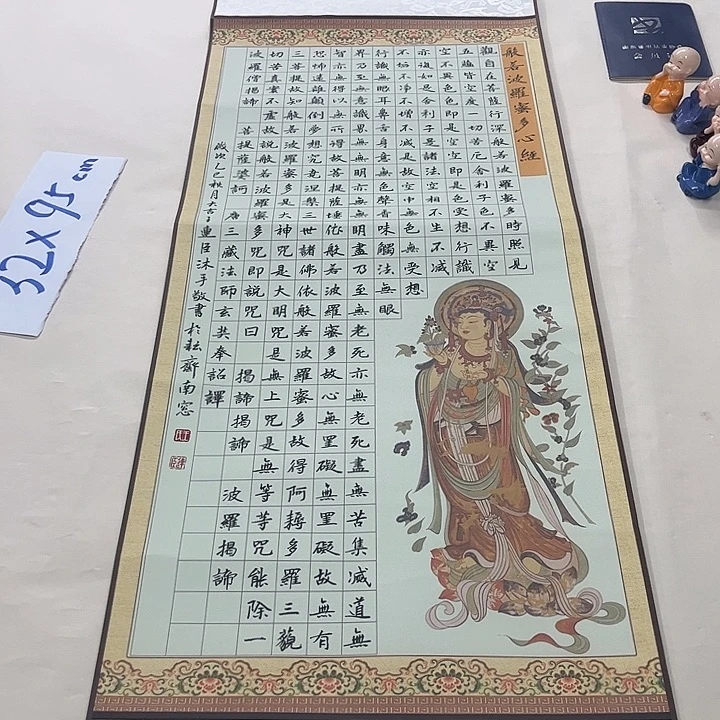 般若波羅蜜多心經
觀自在菩薩行深般若波羅蜜多時照見
五蘊皆空度一切苦厄舍利子色不異空
空不異色色即是空空即是色受想行識
亦復如是舍利子是諸法空相不生不滅
不垢不淨不增不減是故空中無色無受想
行識無眼耳鼻舌身意無色聲香味觸法無眼
界乃至無意識界無無明亦無無明盡乃至無老死亦無老死盡無苦集滅道無
智亦無得以無所得故菩提薩埵依般若波羅蜜多故心無罣礙無罣礙故無有
恐怖遠離顛倒夢想究竟涅槃三世諸佛依般若波羅蜜多故得阿耨多羅三藐
三菩提故知般若波羅蜜多是大神咒是大明咒是無上咒是無等等咒能除一
切苦真實不虛故說般若波羅蜜多咒即說咒曰 揭諦揭諦 波羅揭諦
波羅僧揭諦 菩提薩婆訶 唐三藏法師玄奘奉詔譯
歲次乙巳秋月大吉 連臣沐手敬書於耘齋南窓
32×95cm